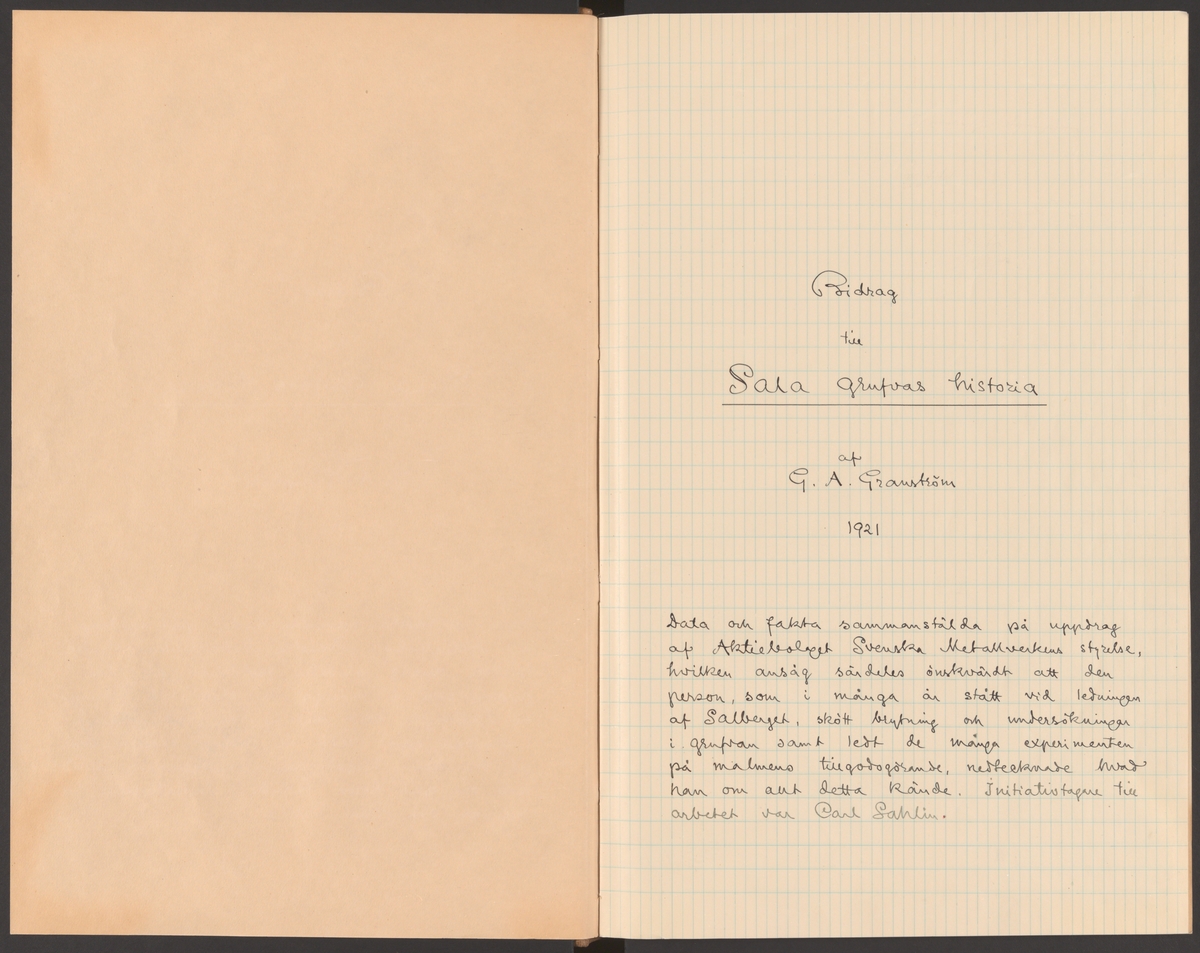 Bidrag
till
Sala grufvas historia
af
G. A. Granström
1921
Data och fakta sammanstälda på uppdrag
af Aktiebolaget Svenska Metallverkens styrelse,
hvilken ansåg särdeles önskvärdt att den
person, som i många år stått vid ledningen
af Salberget, skött brytning och undersökningar
i grufvan samt ledt de många experimenten
på malmens tillgodogörande, nedtecknade hvad
han om allt detta kände. Initiativtagare till
arbetet var Carl Sahlin.